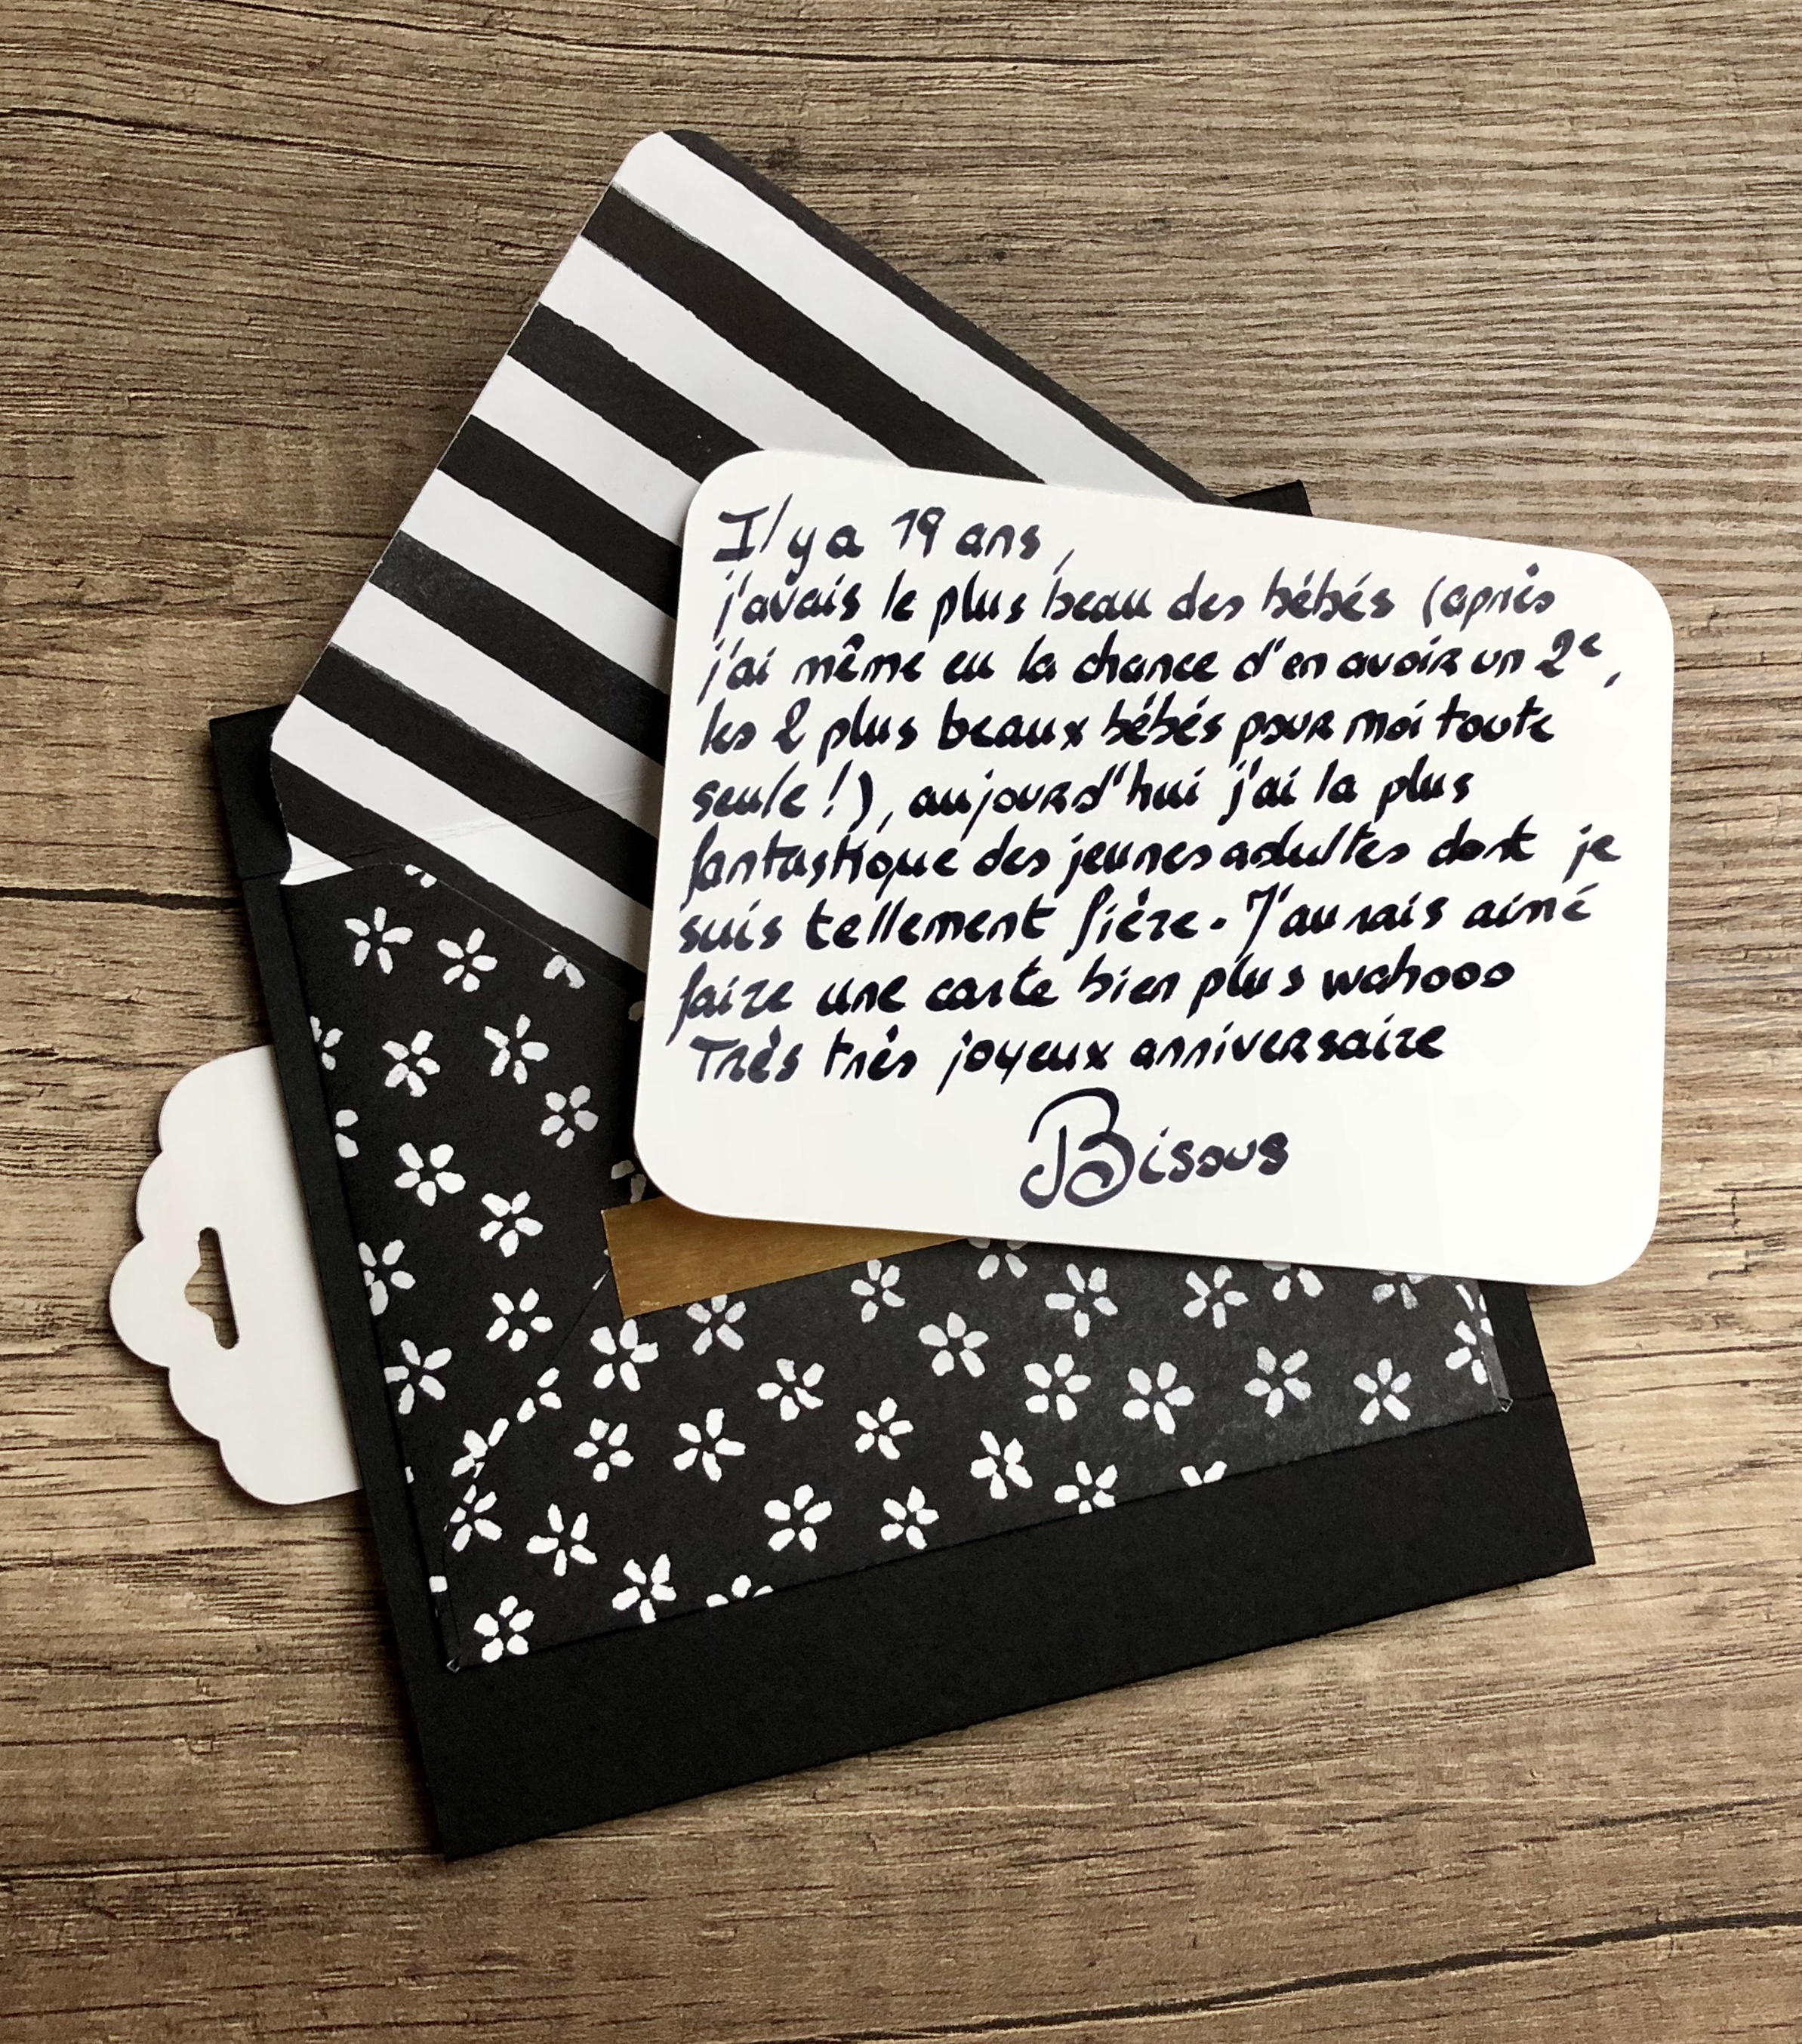 Il y a 19 ans,
j'avais le plus beau des bébés (après
j'ai même eu la chance d'en avoir un 2e,
les 2 plus beaux bébés pour moi toute
seule !), aujourd'hui j'ai la plus
fantastique des jeunes adultes dont je
suis tellement fière. J'aurais aimé
faire une carte bien plus wahooo
Très très joyeux anniversaire
Bisous